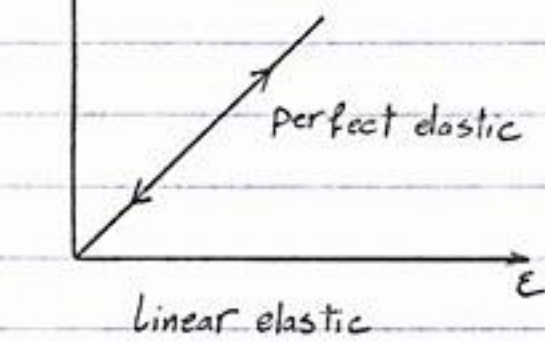 Perfect elastic
ε
linear elastic